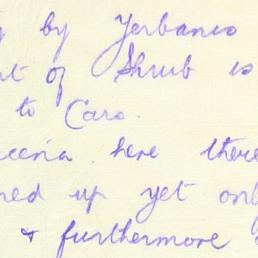 by Yerbanis
of Shrub is
to Caro.
here there
up yet only
& furthermore